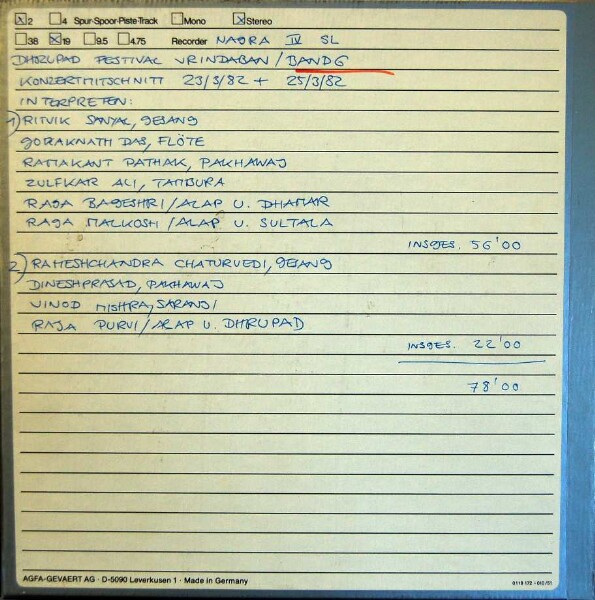 ☒2 ☐4 Spur-Spoor-Piste-Track ☐Mono ☒Stereo
☐38 ☒19 ☐9.5 ☐4.75 Recorder NAGRA IV SL
DHRUPAD FESTIVAL VRINDABAN / BAND 6
KONZERTMITSCHNITT 23/3/82 + 25/3/82
INTERPRETEN:
1) RITVIK SANYAL, GESANG
GORAKNATH DAS, FLÖTE
RAMAKANT PATHAK, PAKHAWAJ
ZULFKAR ALI, TAMBURA
RAGA BAGESHRI / ALAP U. DHAMAR
RAGA MALKOSH / ALAP U. SULTALA
INSGES. 56'00
2) RAMESHCHANDRA CHATURVEDI, GESANG
DINESHPRASAD, PAKHAWAJ
VINOD MISHRA, SARANGI
RAGA PURVI / ALAP U. DHRUPAD
INSGES. 22'00
78'00
AGFA-GEVAERT AG · D-5090 Leverkusen 1 · Made in Germany